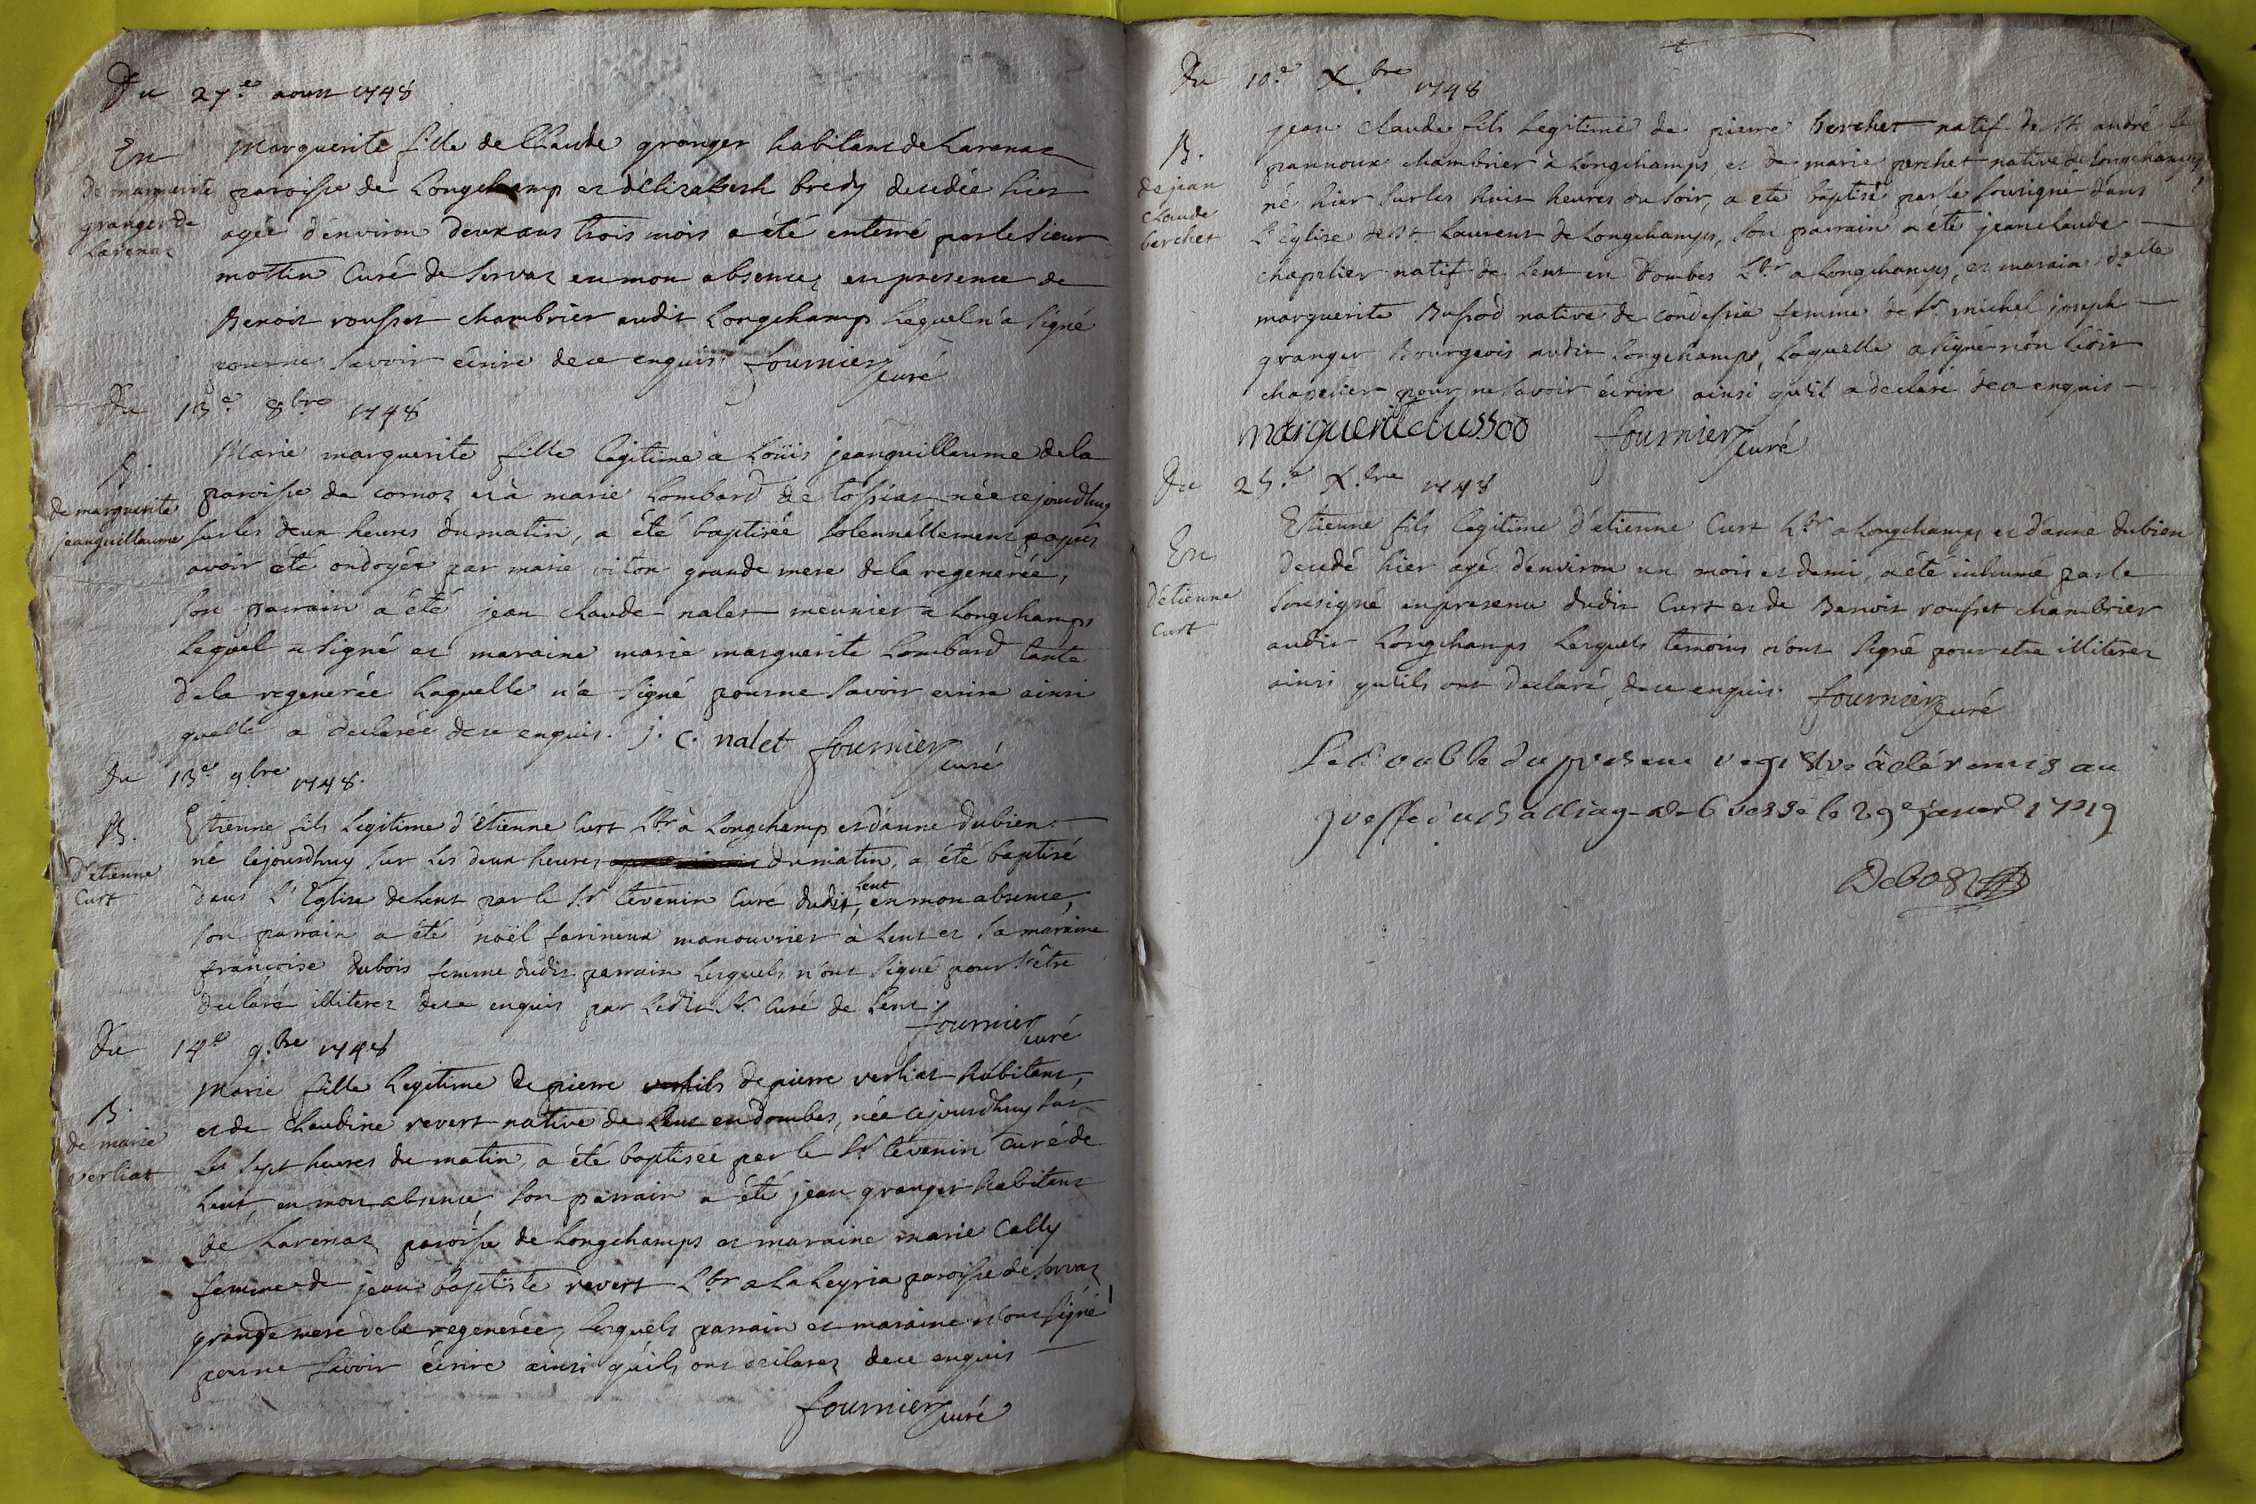 Du 27.e aoust 1748
En
de marguerite
granger de
Larenaz
Marguerite fille de Claude granger habitant de Larenaz
paroisse de Longchamp et d'Elizabeth bredy decedée hier
agée d'environ deux ans trois mois a été enterré par le sieur
mottin Curé de Servaz en mon absence, en presence de
Benoit rousset chambrier audit Longchamp Lequel n'a signé
pour ne savoir écrire de ce enquis. fournier curé
Du 13.e 8bre 1748
B.
de marguerite
jeanguillaume
Marie marguerite fille legitime a Loüis jeanguillaume de la
paroisse de cornoz et à marie Lombard de tossiat née cejourdhuy
sur les deux heures du matin, a été baptisée solennellement après
avoir été ondoyée par marie viton grande mere de la regenerée,
son parrain a été jean claude nalet meunier a Longchamps
Lequel a signé et maraine marie marguerite Lombard tante
de la regenerée Laquelle n'a signé pour ne savoir ecrire ainsi
quelle a declarée de ce enquis. j. c. nalet fournier curé
Du 13.e 9bre 1748.
B.
D'etienne
Curt
Etienne fils Legitime d'étienne Curt Lbr à Longchamp et d'anne dubien
né cejourdhuy sur les deux heures du matin, a été baptisé
dans L'Eglise de Lent par le Sr. tévenin Curé dudit Lent, en mon absence,
son parrain a été noël farineux manouvrier à Lent et sa maraine
francoise dubois femme dudit parrain Lesquels n'ont signé pour s'être
declaré illiterez de ce enquis par Ledit Sr. Curé de Lent.
fournier curé
Du 14.e 9.bre 1748
B.
de marie
verliat
Marie fille Legitime de pierre fils de pierre verliat habitant,
et de Claudine revert native de Lent en dombes, née cejourdhuy sur
Les sept heures du matin, a été baptisée par le Sr. tévenin Curé de
Lent, en mon absence, son parrain a été jean granger habitant
de Larenaz paroisse de Longchamps et maraine marie Cally
femme de jean baptiste revert Lbr a La Leyria paroisse de Servaz
grande mere de la regenerée, Lesquels parrain et maraine n'ont signé
pour ne savoir écrire ainsi qu'ils ont declarez de ce enquis
fournier curé
Du 10.e X.bre 1748
B.
de jean
Claude
berchet
jean claude fils Legitime de pierre berchet natif de St. andré le
pannoux chambrier à Longchamps, et de marie perchet native de Longchamps,
né hier sur les huit heures du soir, a eté baptisé par le sousigné dans
L'Eglise de St. Laurent de Longchamps, son parrain a été jean claude
chapelier natif de Lent en Dombes Lbr a Longchamps, et maraine d.elle
marguerite Bussod native de condessia femme de Sr. michel joseph
granger Bourgeois audit Longchamps, Laquelle a signé non Ledit
chapelier pour ne savoir écrire ainsi qu'il a declaré de ce enquis
marguerite bussod fournier curé
Du 25.e X.bre 1748
En
D'étienne
Curt
Etienne fils legitime d'etienne Curt Lbr a Longchamps et d'anne dubien
decedé hier agé d'environ un mois et demi, a été inhumé par le
sousigné en presence dudit Curt et de Benoit rousset chambrier
audit Longchamps Lesquels temoins n'ont signé pour etre illiterez
ainsi qu'ils ont declaré, de ce enquis. fournier curé
Le double du present registre a été remis au
greffe du Balliage de bresse le 29e janver